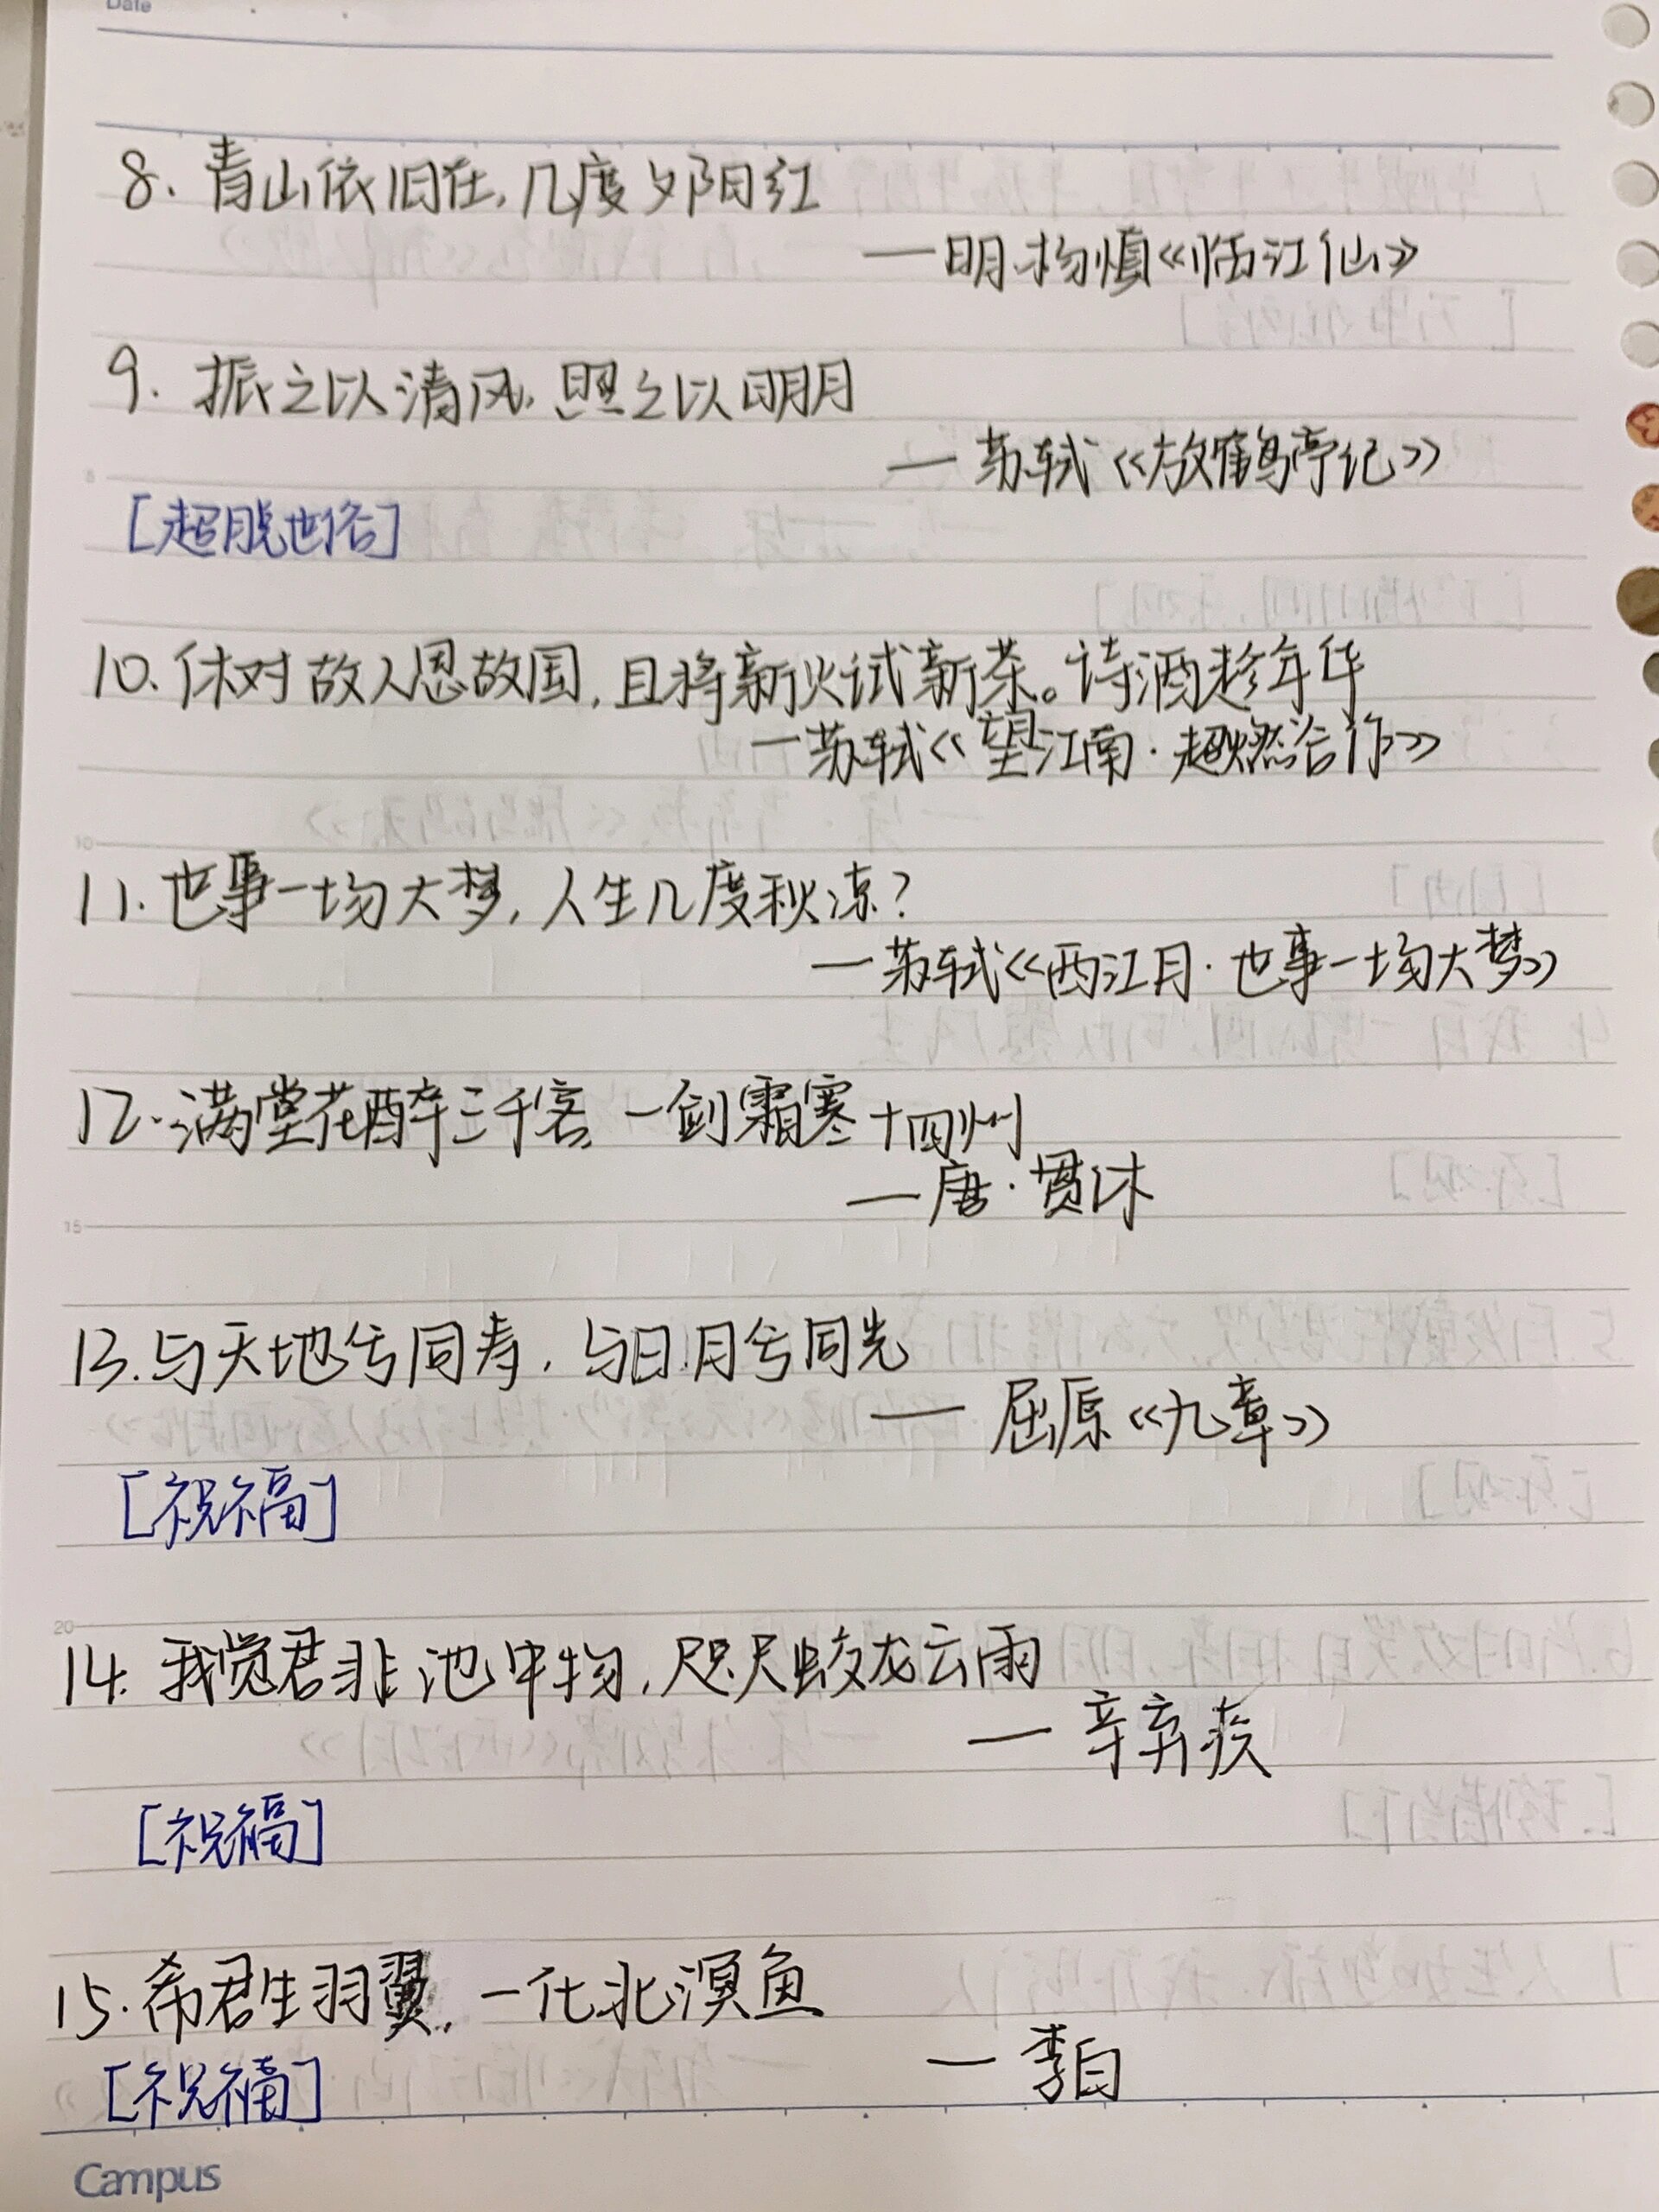 Date
8. 青山依旧在,几度夕阳红
—明·杨慎《临江仙》
9. 振之以清风,照之以明月
—苏轼《放鹤亭记》
[超脱世俗]
10. 休对故人思故国,且将新火试新茶。诗酒趁年华
—苏轼《望江南·超然台作》
11. 世事一场大梦,人生几度秋凉?
—苏轼《西江月·世事一场大梦》
12. 满堂花醉三千客,一剑霜寒十四州
—唐·贯休
13. 与天地兮同寿,与日月兮同光
— 屈原《九章》
[祝福]
14. 我觉君非池中物,咫尺蛟龙云雨
— 辛弃疾
[祝福]
15. 希君生羽翼,一化北溟鱼
— 李白
[祝福]
Campus